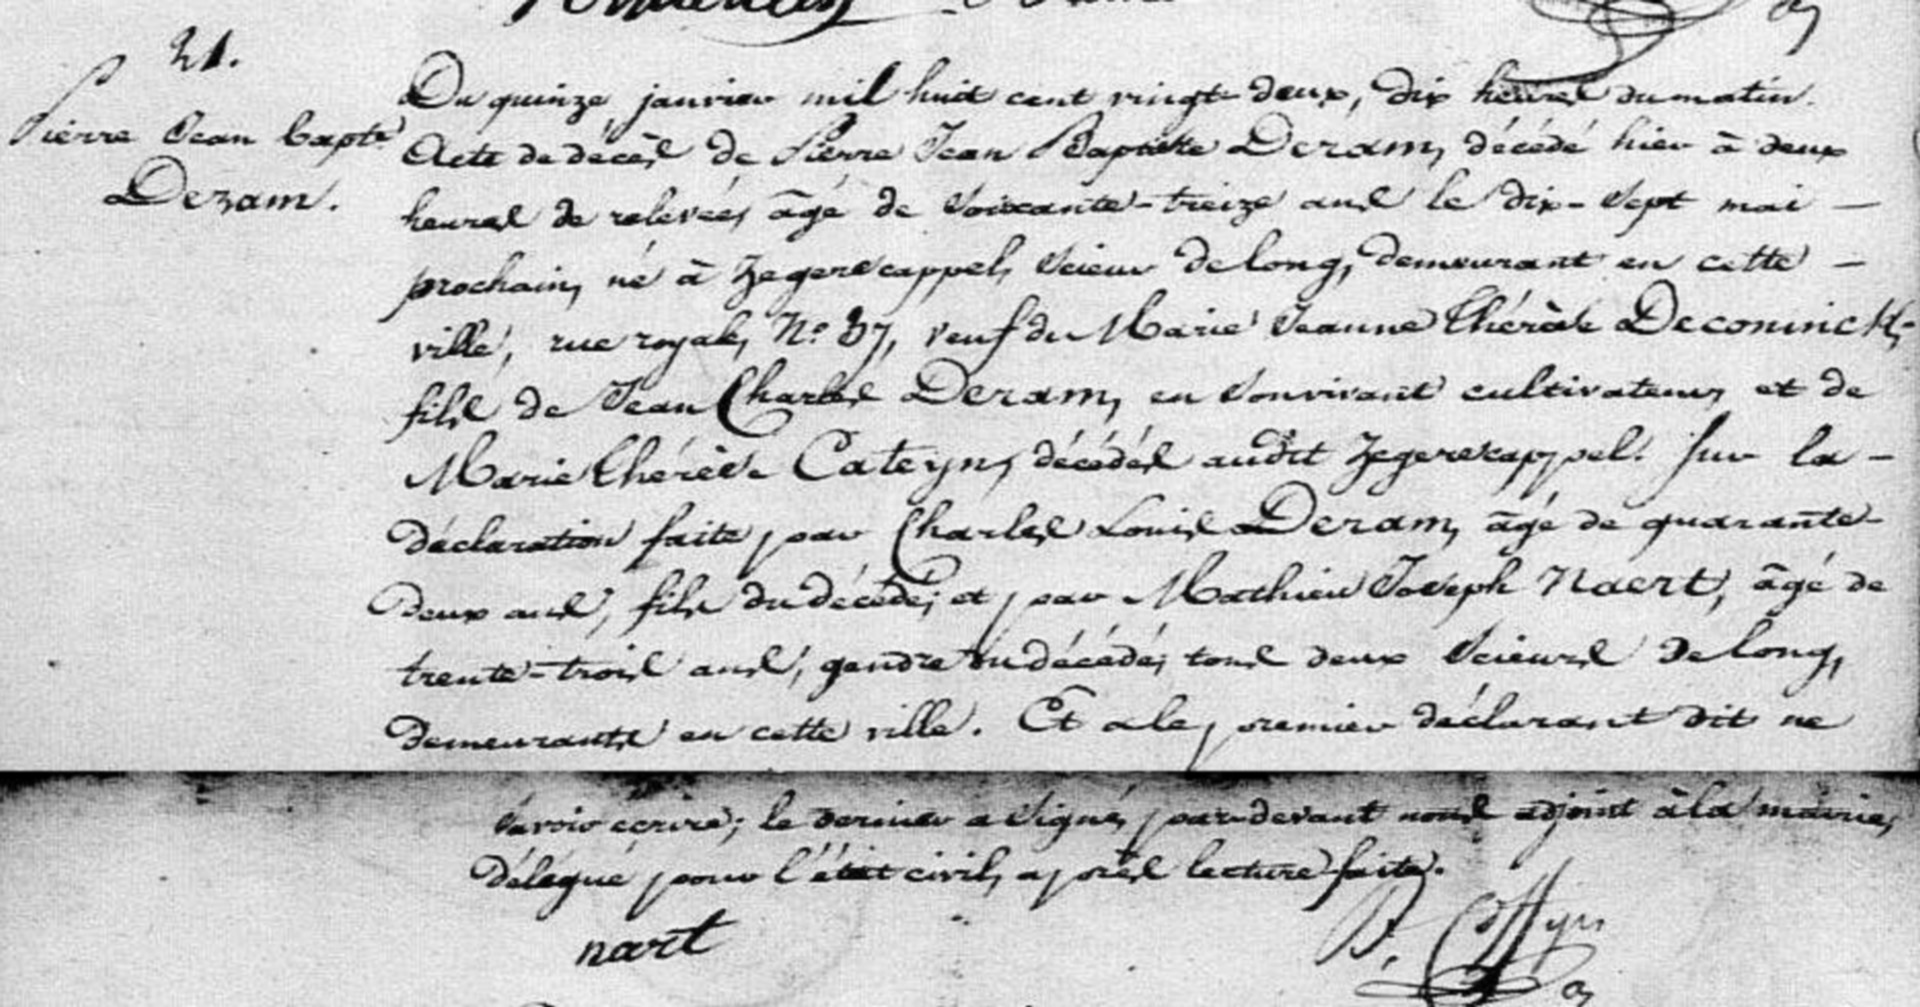 21.
Pierre Jean Bapte
Deram.
Du quinze janvier mil huit cent vingt-deux, dix heures du matin.
Acte de décès de Pierre Jean Baptiste Deram, décédé hier à deux
heures de relevée, âgé de soixante-treize ans le dix-sept mai —
prochain, né à Zegerscappel, scieur de long, demeurant en cette —
ville, rue royale, N.o 37, veuf de Marie Jeanne Thérèse Deconinck,-
fils de Jean Charles Deram, en son vivant cultivateur, et de
Marie Thérèse Cateyn, décédés audit Zegerscappel. Sur la -
déclaration faite par Charles Louis Deram, âgé de quarante-
deux ans, fils du décédé; et par Mathieu Joseph Naert, âgé de
trente-trois ans, gendre du décédé; tous deux scieurs de long,
demeurants en cette ville. Et a le premier déclarant dit ne
savoir écrire; le dernier a signé, par-devant nous adjoint à la mairie,
délégué pour l'état civil, après lecture faite.
nart
B. Coffyn